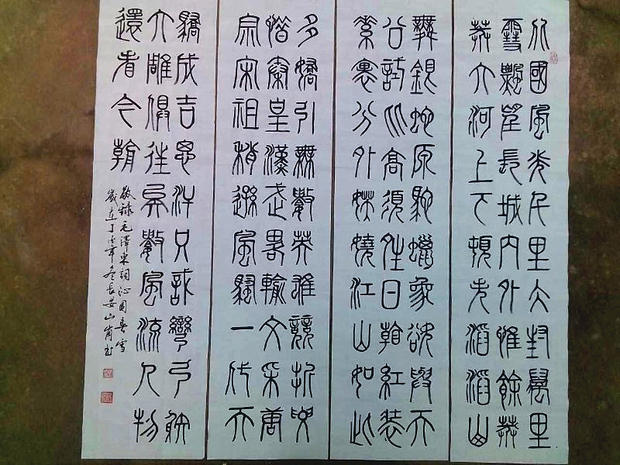 北國風光千里冰封萬里
雪飄望長城內外惟餘莽
莽大河上下頓失滔滔山
舞銀蛇原馳蠟象欲與天
公試比高須晴日看紅裝
素裹分外妖嬈江山如此
多嬌引無數英雄競折腰
惜秦皇漢武略輸文采唐
宗宋祖稍遜風騷一代天
驕成吉思汗只識彎弓射
大雕俱往矣數風流人物
還看今朝
敬錄毛澤東詞沁園春雪
歲在丁酉年冬長安山